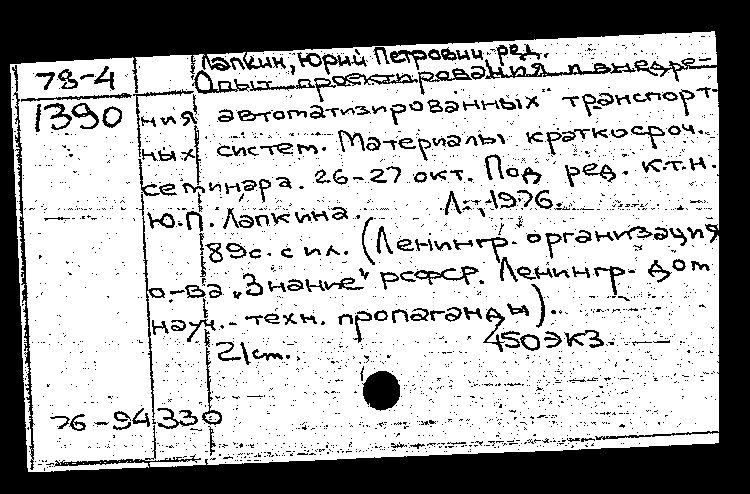 Лапкин, Юрий Петрович ред.
78-4 Опыт проектирования и внедре-
1390 ния автоматизированных транспорт-
ных систем. Материалы краткосроч.
семинара. 26-27 окт. Под ред. к.т.н.
Ю.П. Лапкина. Л., 1976.
89с. с ил. (Ленингр. организация
о-ва „Знание" РСФСР. Ленингр. дом
науч.-техн. пропаганды).
21см. 450 экз.
76-94330